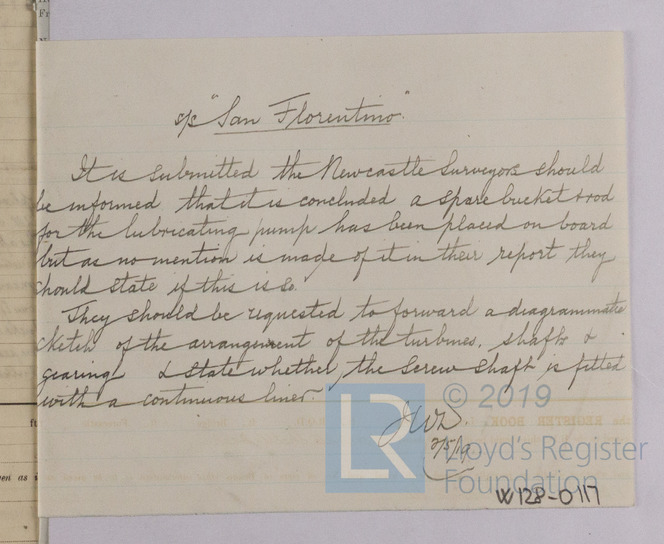 s/s "San Florentino"
It is submitted the Newcastle Surveyors should
be informed that it is concluded a spare bucket & rod
for the lubricating pump has been placed on board
but as no mention is made of it in their report they
should state if this is so.
They should be requested to forward a diagrammatic
sketch of the arrangement of the turbines, shafts &
gearing & state whether the screw shaft is fitted
with a continuous liner.
2/5/19
© 2019
LR
Lloyd's Register
Foundation
W128-0117